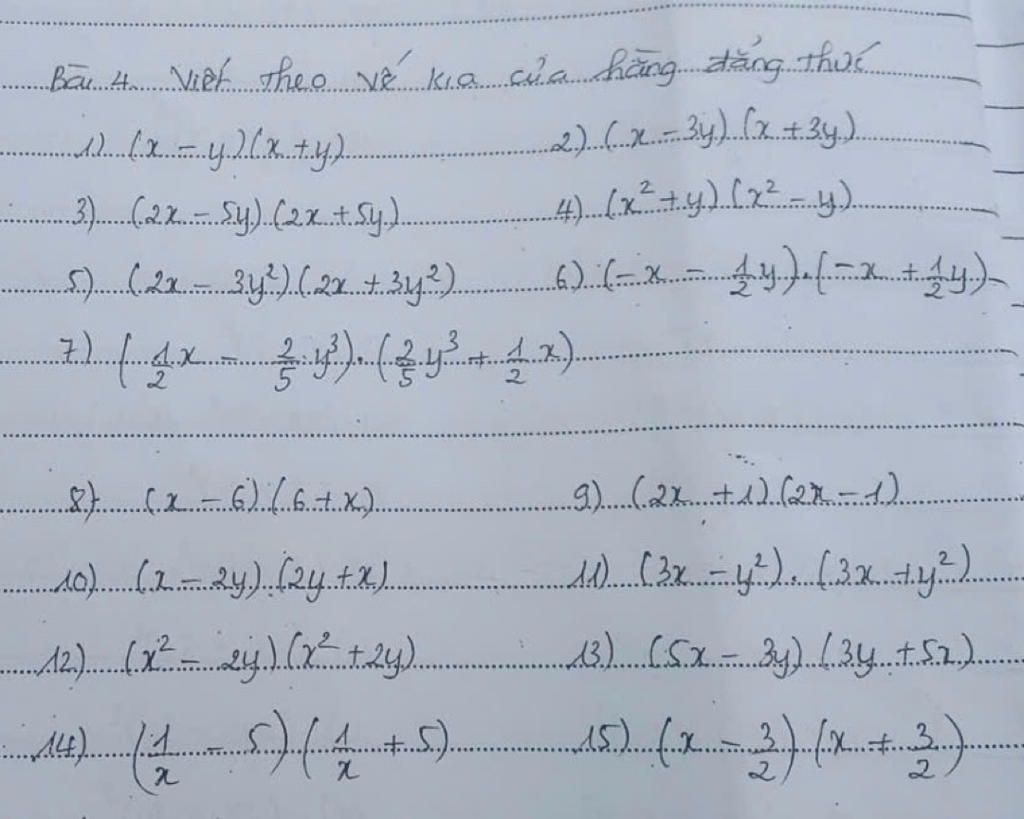 Bài 4. Viết theo vế kia của hằng đẳng thức
1) (x - y)(x + y) 2) (x - 3y)(x + 3y)
3) (2x - 5y)(2x + 5y) 4) (x² + y)(x² - y)
5) (2x - 3y²)(2x + 3y²) 6) (-x - 1/2 y).(-x + 1/2 y)
7) (1/2 x - 2/5 y³).(2/5 y³ + 1/2 x)
8) (x - 6)(6 + x) 9) (2x + 1)(2x - 1)
10) (x - 2y)(2y + x) 11) (3x - y²).(3x + y²)
12) (x² - 2y)(x² + 2y) 13) (5x - 3y)(3y + 5x)
14) (1/x - 5)(1/x + 5) 15) (x - 3/2)(x + 3/2)